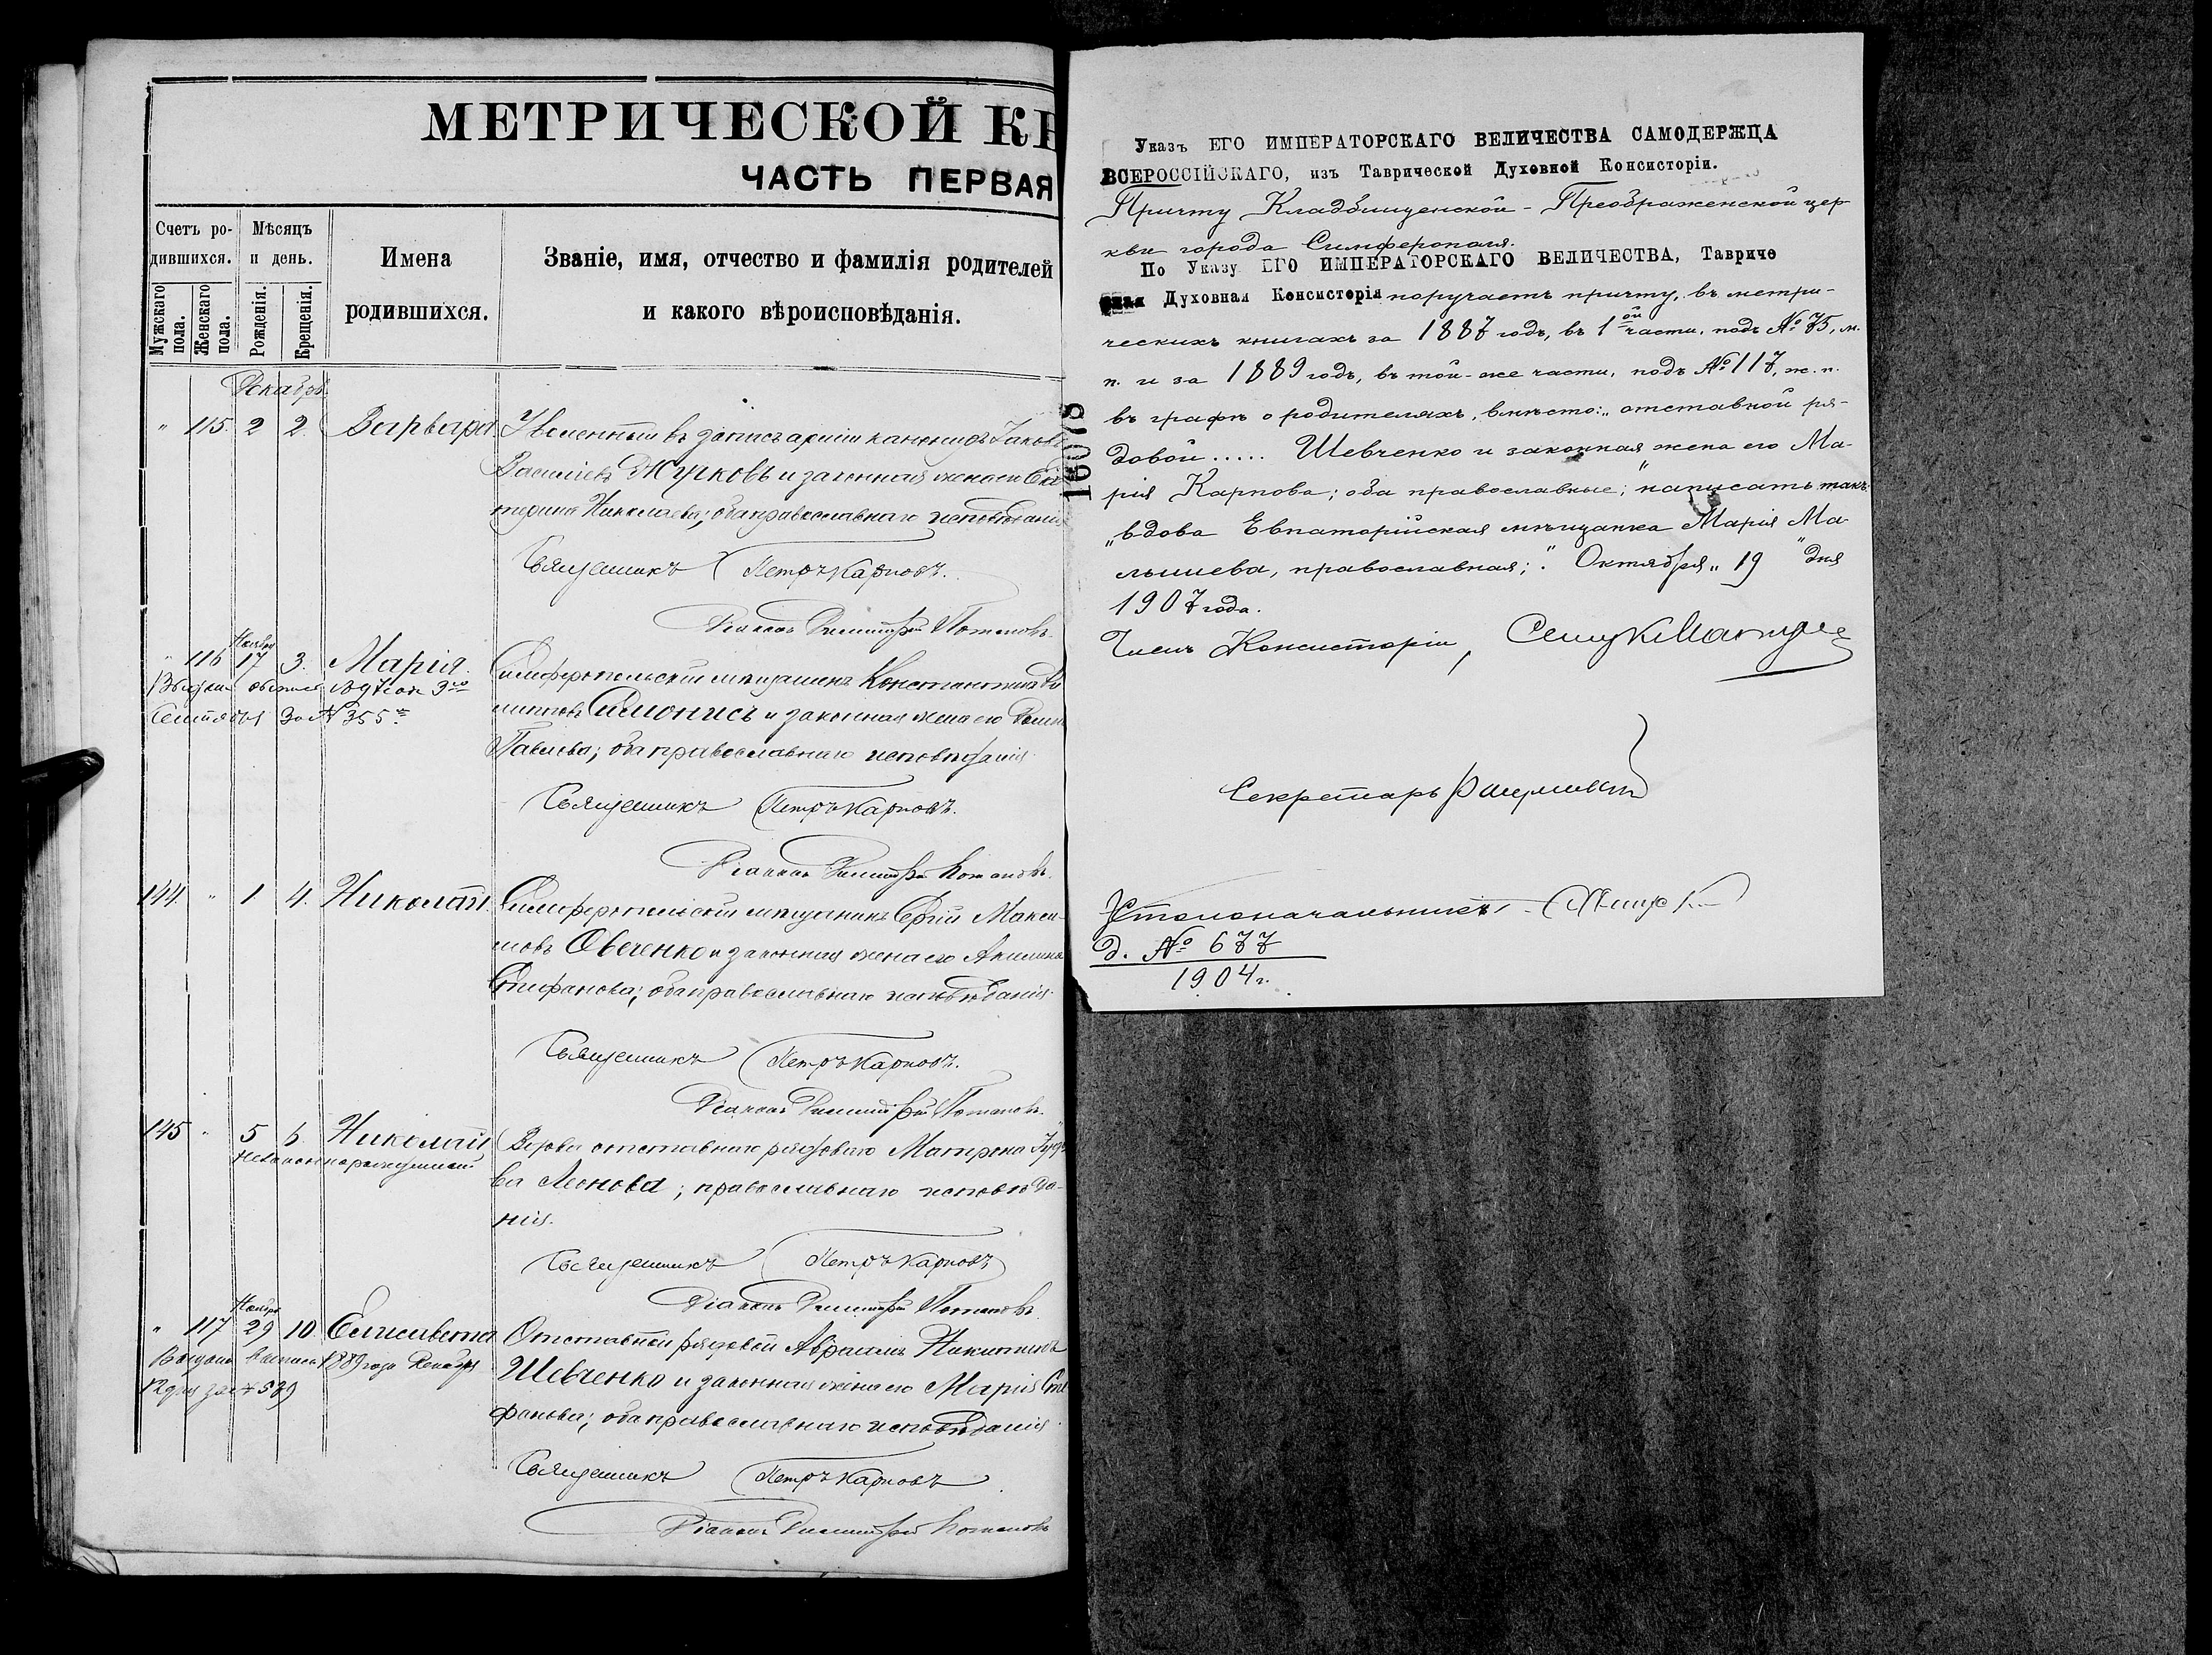 МЕТРИЧЕСКОЙ КН
ЧАСТЬ ПЕРВАЯ
Счетъ ро-
дившихся.
Мужскаго
пола.
Женскаго
пола.
Мѣсяцъ
и день.
Рожденія.
Крещенія.
Имена
родившихся.
Званіе, имя, отчество и фамилія родителей
и какого вѣроисповѣданія.
Декабрь
" 115. 2 2. Варвара.
Уволенный въ запасъ арміи
Василіевъ Жуковъ и законная жена его Ека
терина Николаева; оба православнаго исповѣданія
Священникъ Петръ Карповъ.
Діаконъ Димитрій Потаповъ.
Ноября
" 116 17 3. Марія.
Сентября За № 355.
Симферопольскій мѣщанинъ Константинъ
Симонисъ и законная жена его
Павлова; оба православнаго исповѣданія
Священникъ Петръ Карповъ.
Діаконъ Димитрій Потаповъ.
144. " 1 4. Николай.
Симферопольскій мѣщанинъ Сергій Макси-
мовъ Овченко и законная жена его Акилина
Епифанова; оба православнаго исповѣданія.
Священникъ Петръ Карповъ.
Діаконъ Димитрій Потаповъ.
145 " 5 6. Николай
незаконнорожденный
Вдова отставнаго рядоваго Матрона
ва Леонова; православнаго исповѣда-
нія.
Священникъ Петръ Карповъ
Діаконъ Димитрій Потаповъ
Ноября
" 117 29 10. Елисавета
1889 года Декабря
12 дня за № 589
Отставной рядовой Авраамъ Никитинъ
Шевченко и законная жена его Марія Сте
фанова; оба православнаго исповѣданія.
Священникъ Петръ Карповъ
Діаконъ Димитрій Потаповъ
Указъ ЕГО ИМПЕРАТОРСКАГО ВЕЛИЧЕСТВА САМОДЕРЖЦА
ВСЕРОССІЙСКАГО, изъ Таврической Духовной Консисторіи.
Причту Кладбищенской-Преображенской цер-
кви города Симферополя.
По Указу ЕГО ИМПЕРАТОРСКАГО ВЕЛИЧЕСТВА, Тавриче
ская Духовная Консисторія поручаетъ причту, въ метри-
ческихъ книгахъ за 1887 годъ, въ 1ой части, подъ № 75, м.
п. и за 1889 годъ, въ той-же части, подъ № 117, ж. п.
въ графѣ о родителяхъ, вмѣсто: „отставной ря-
довой..... Шевченко и законная жена его Ма-
рія Карпова; оба православные;" написать такъ:
„вдова Евпаторійская мѣщанка Марія Ма-
лышева, православная;". Октября „19" дня
1907 года.
Членъ Консисторіи,
Секретарь
Столоначальникъ
д. № 677
1904 г.
16078